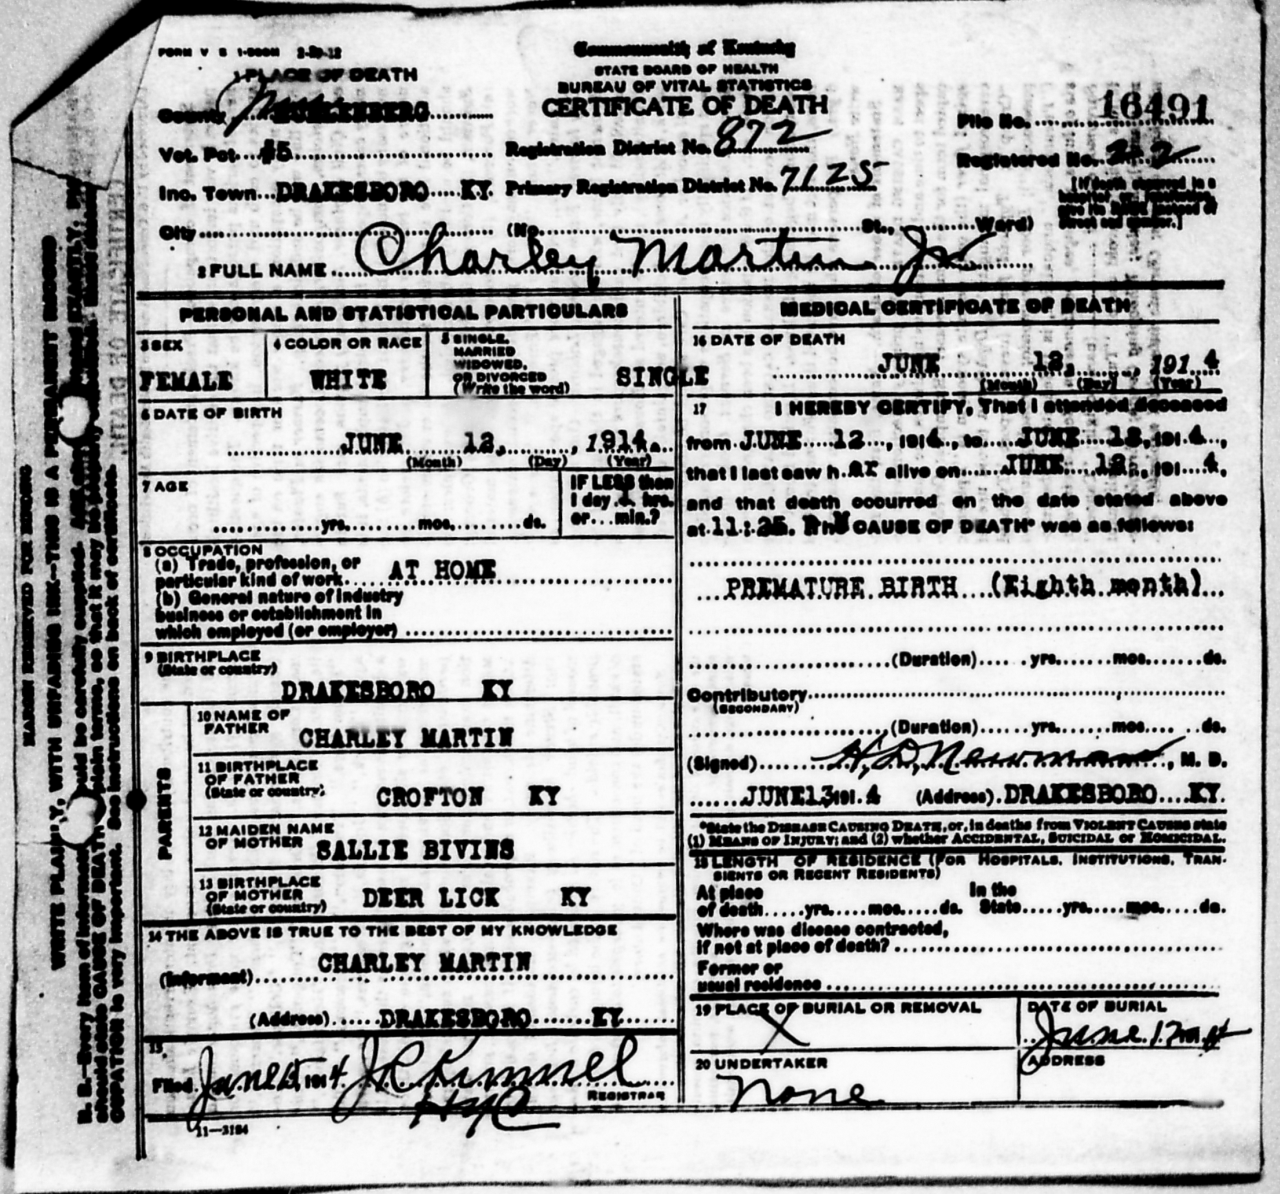 FORM V S 1-500M 2-20-12
Commonwealth of Kentucky
STATE BOARD OF HEALTH
BUREAU OF VITAL STATISTICS
CERTIFICATE OF DEATH
1 PLACE OF DEATH
County MUHLENBERG
Vot. Pct. #5
Inc. Town DRAKESBORO KY
City (No. St., Ward)
Registration District No. 872
Primary Registration District No. 7125
File No. 16491
Registered No.
[If death occurred in a
2 FULL NAME Charley Martin Jr
PERSONAL AND STATISTICAL PARTICULARS
3 SEX
FEMALE
4 COLOR OR RACE
WHITE
5 SINGLE,
MARRIED
WIDOWED,
OR DIVORCED
(Write the word)
SINGLE
6 DATE OF BIRTH
JUNE 12, , 1914.
(Month) (Day) (Year)
7 AGE
yrs. mos. ds.
IF LESS than
1 day 1 hrs.
or ... min.?
8 OCCUPATION
(a) Trade, profession, or
particular kind of work AT HOME
(b) General nature of industry
business or establishment in
which employed (or employer)
9 BIRTHPLACE
(State or country)
DRAKESBORO KY
PARENTS
10 NAME OF
FATHER
CHARLEY MARTIN
11 BIRTHPLACE
OF FATHER
(State or country)
CROFTON KY
12 MAIDEN NAME
OF MOTHER
SALLIE BIVINS
13 BIRTHPLACE
OF MOTHER
(State or country)
DEER LICK KY
14 THE ABOVE IS TRUE TO THE BEST OF MY KNOWLEDGE
(Informant) CHARLEY MARTIN
(Address) DRAKESBORO KY
15
Filed June 15, 1914 J C Kimmel
REGISTRAR
11—3184
MEDICAL CERTIFICATE OF DEATH
16 DATE OF DEATH
JUNE 12, , 1914
(Month) (Day) (Year)
17 I HEREBY CERTIFY, That I attended deceased
from JUNE 12 , 1914, to JUNE 12, 1914,
that I last saw h ER alive on JUNE 12, 1914,
and that death occurred on the date stated above
at 11:25. P M CAUSE OF DEATH* was as follows:
PREMATURE BIRTH (Eighth month)
(Duration) yrs. mos. ds.
Contributory
(SECONDARY)
(Duration) yrs. mos. ds.
(Signed) H. D. Newman , M. D.
JUNE 13 191 4 (Address) DRAKESBORO KY.
*State the DISEASE CAUSING DEATH, or, in deaths from VIOLENT CAUSES state
(1) MEANS OF INJURY; and (2) whether ACCIDENTAL, SUICIDAL OR HOMICIDAL.
18 LENGTH OF RESIDENCE (FOR HOSPITALS, INSTITUTIONS, TRAN-
SIENTS OR RECENT RESIDENTS)
At place In the
of death yrs. mos. ds. State yrs. mos. ds.
Where was disease contracted,
if not at place of death?
Former or
usual residence
19 PLACE OF BURIAL OR REMOVAL
X
DATE OF BURIAL
20 UNDERTAKER
None
ADDRESS
MARGIN RESERVED FOR BINDING
WRITE PLAINLY, WITH UNFADING INK—THIS IS A PERMANENT RECORD
N. B.—Every item of information should be carefully supplied.
should state CAUSE OF DEATH in plain terms, so that it may be properly
OCCUPATION is very important. See instructions on back of certificate.